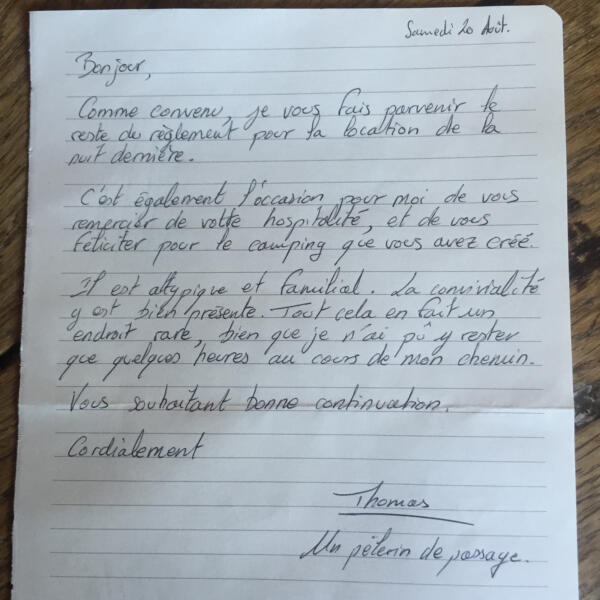 Samedi 20 Août.
Bonjour,
Comme convenu, je vous fais parvenir le
reste du règlement pour la location de la
nuit dernière.
C'est également l'occasion pour moi de vous
remercier de votre hospitalité, et de vous
féliciter pour le camping que vous avez créé.
Il est atypique et familial. La convivialité
y est bien présente. Tout cela en fait un
endroit rare, bien que je n'ai pû y rester
que quelques heures au cours de mon chemin.
Vous souhaitant bonne continuation.
Cordialement
Thomas
Un pèlerin de passage.